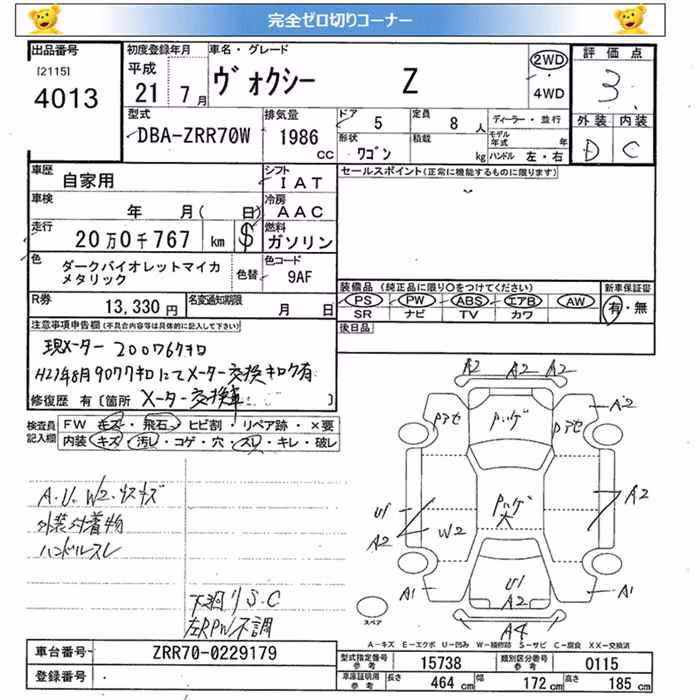 完全ゼロ切りコーナー
出品番号 初度登録年月 車名・グレード 評価点
[2115] 平成 ヴォクシー Z 2WD
4013 21年 7月 4WD 3
型式 排気量 ドア 5 定員 8人 ディーラー・並行 外装 内装
DBA-ZRR70W 1986cc 形状 ワゴン 積載 kg モデル年式 年 D C
ハンドル 左・右
車歴 自家用 シフト IAT セールスポイント(正常に機能するものに限ります)
車検 年 月( 日) 冷房 AAC
走行 20万0千767 km $ 燃料 ガソリン
色 ダークバイオレットマイカ 色替 色コード 9AF
メタリック
装備品(純正品に限り○をつけてください) 新車保証書
R券 13,330円 名変通知期限 月 日 PS PW ABS エアB AW 有・無
SR ナビ TV カワ
注意事項申告欄(不具合内容等は具体的に記入して下さい) 後日品
現メーター 200767キロ
H21年8月9077キロにてメーター交換キロク有
修復歴 有〔箇所 メーター交換車 〕
検査員記入欄 FW キズ・飛石・ヒビ割・リペア跡・×要
内装 キズ・汚レ・コゲ・穴・スレ・キレ・破レ
A2 A2 A2
A2
A2
U1
A2 W2
A1 U1 A1
A2
A4
スペア
A.U.W2.キズキズ
外装付着物
ハンドルスレ
下廻りS.C
左RPW不調
A-キズ E-エクボ U-凹み W-補修跡 S-サビ C-腐食 XX-交換済
車台番号 ZRR70-0229179 型式指定番号 参考 15738 類別区分番号 参考 0115
登録番号 車庫証明用 参考 長さ 464cm 幅 172cm 高さ 185cm